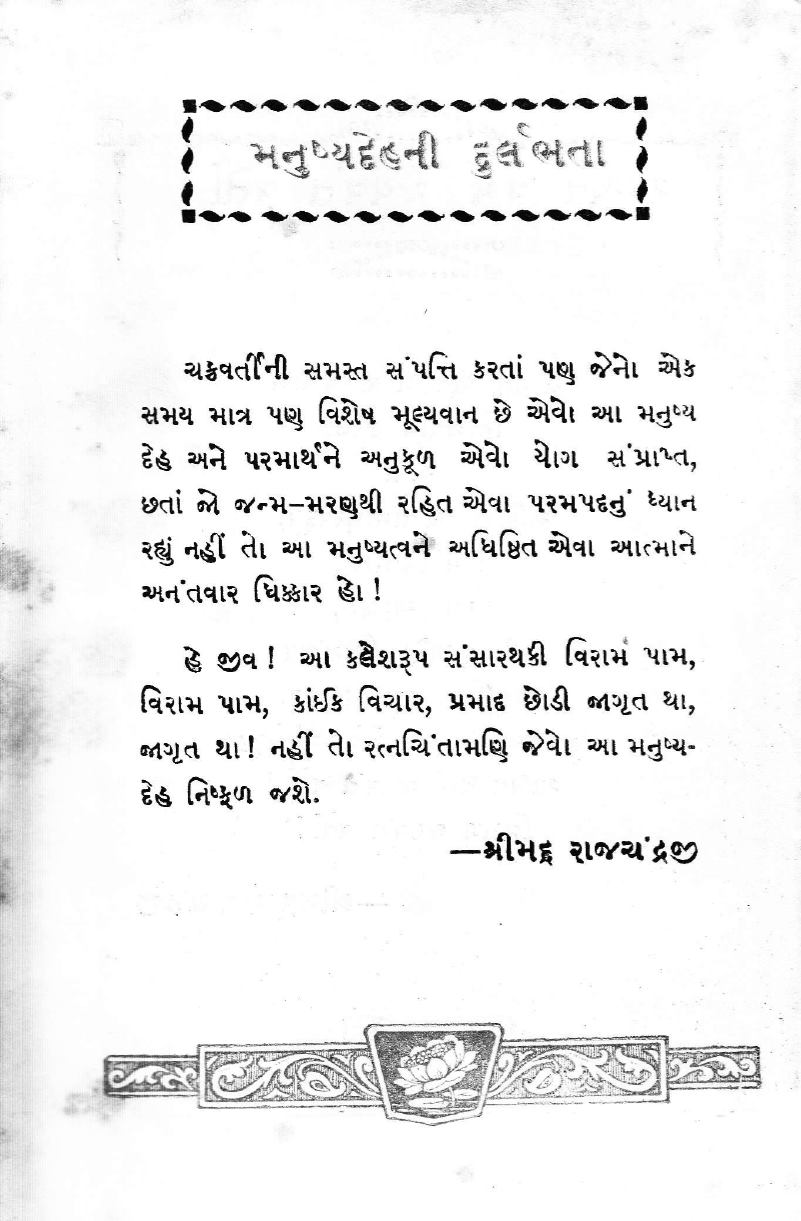 મનુષ્યદેહની દુર્લભતા
ચક્રવર્તીની સમસ્ત સંપત્તિ કરતાં પણ જેનો એક
સમય માત્ર પણ વિશેષ મૂલ્યવાન છે એવો આ મનુષ્ય
દેહ અને પરમાર્થને અનુકૂળ એવો યોગ સંપ્રાપ્ત,
છતાં જો જન્મ–મરણથી રહિત એવા પરમપદનું ધ્યાન
રહ્યું નહીં તો આ મનુષ્યત્વને અધિષ્ઠિત એવા આત્માને
અનંતવાર ધિક્કાર હો !
હે જીવ ! આ કલેશરૂપ સંસારથકી વિરામ પામ,
વિરામ પામ, કાંઈક વિચાર, પ્રમાદ છોડી જાગૃત થા,
જાગૃત થા ! નહીં તો રત્નચિંતામણિ જેવો આ મનુષ્ય-
દેહ નિષ્ફળ જશે.
—શ્રીમદ્ રાજચંદ્રજી